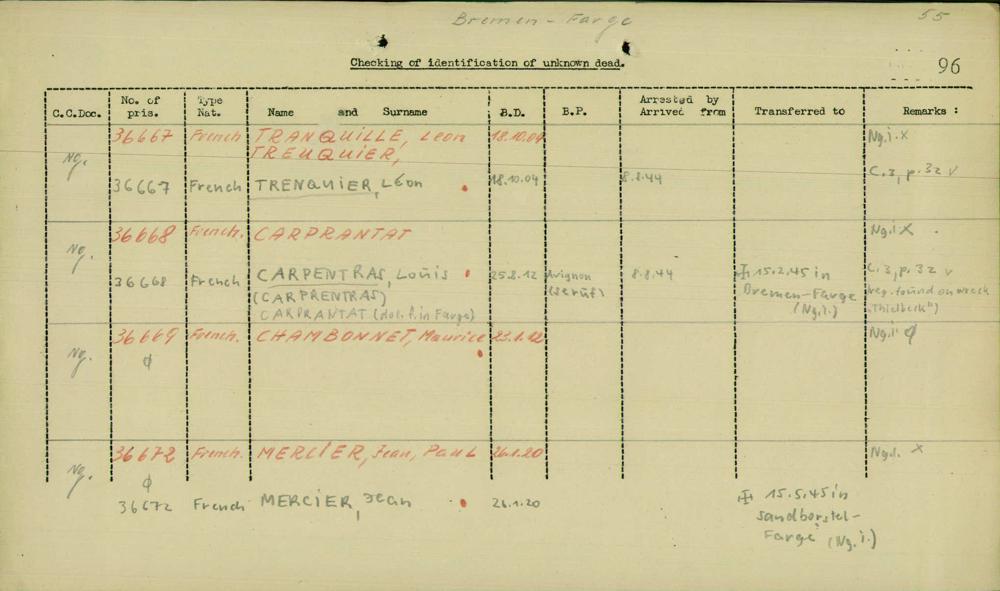 Bremen-Farge 55
96
Checking of identification of unknown dead.
C.C.Doc. No. of pris. Type Nat. Name and Surname B.D. B.P. Arrested by Arrived from Transferred to Remarks :
Ng. 36667 French TRANQUILLE, Leon 18.10.04 Ng.i. x
TREUQUIER,
36667 French TRENQUIER, Léon 18.10.04 8.8.44 C.3, p.32 v
Ng. 36668 French. CARPRANTAT Ng.i X
36668 French CARPENTRAS, Louis 25.8.12 Avignon 8.8.44 15.2.45 in C.3, p.32 v
(CARPRENTRAS) Bremen-Farge found on wreck
CARPRANTAT (Ng.i.) "Thielbeck")
Ng. 36669 French. CHAMBONNET, Maurice 23.1.12 Ng.i. ϕ
ϕ
Ng. 36672 French. MERCIER, Jean, Paul 26.1.20 Ng.i. X
ϕ
36672 French MERCIER, Jean 26.1.20 15.5.45 in
Sandborstel-
Farge (Ng.i.)